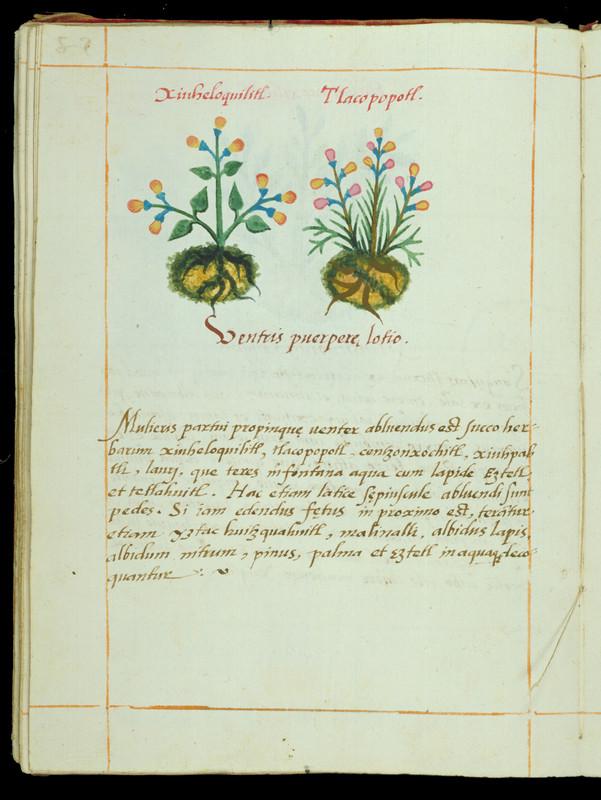 Xiuheloquilitl. Tlacopopotl.
Ventris puerperę lotio.
Mulieris partui propinquę uenter abluendus est succo her-
barum xiuheloquilitl, tlacopopotl, centzonxochitl, xiuhpah
tli, lauri. que teres in fontana aqua cum lapide Eztetl
et tetlahuitl. Hac etiam latice sępiuscule abluendi sunt
pedes. Si iam edendus fętus in proximo est, teratur
etiam yztac huitzquahuitl, malinalli, albidus lapis,
albidum nitrum, pinus, palma et Eztetl in aquaq3 deco-
quantur